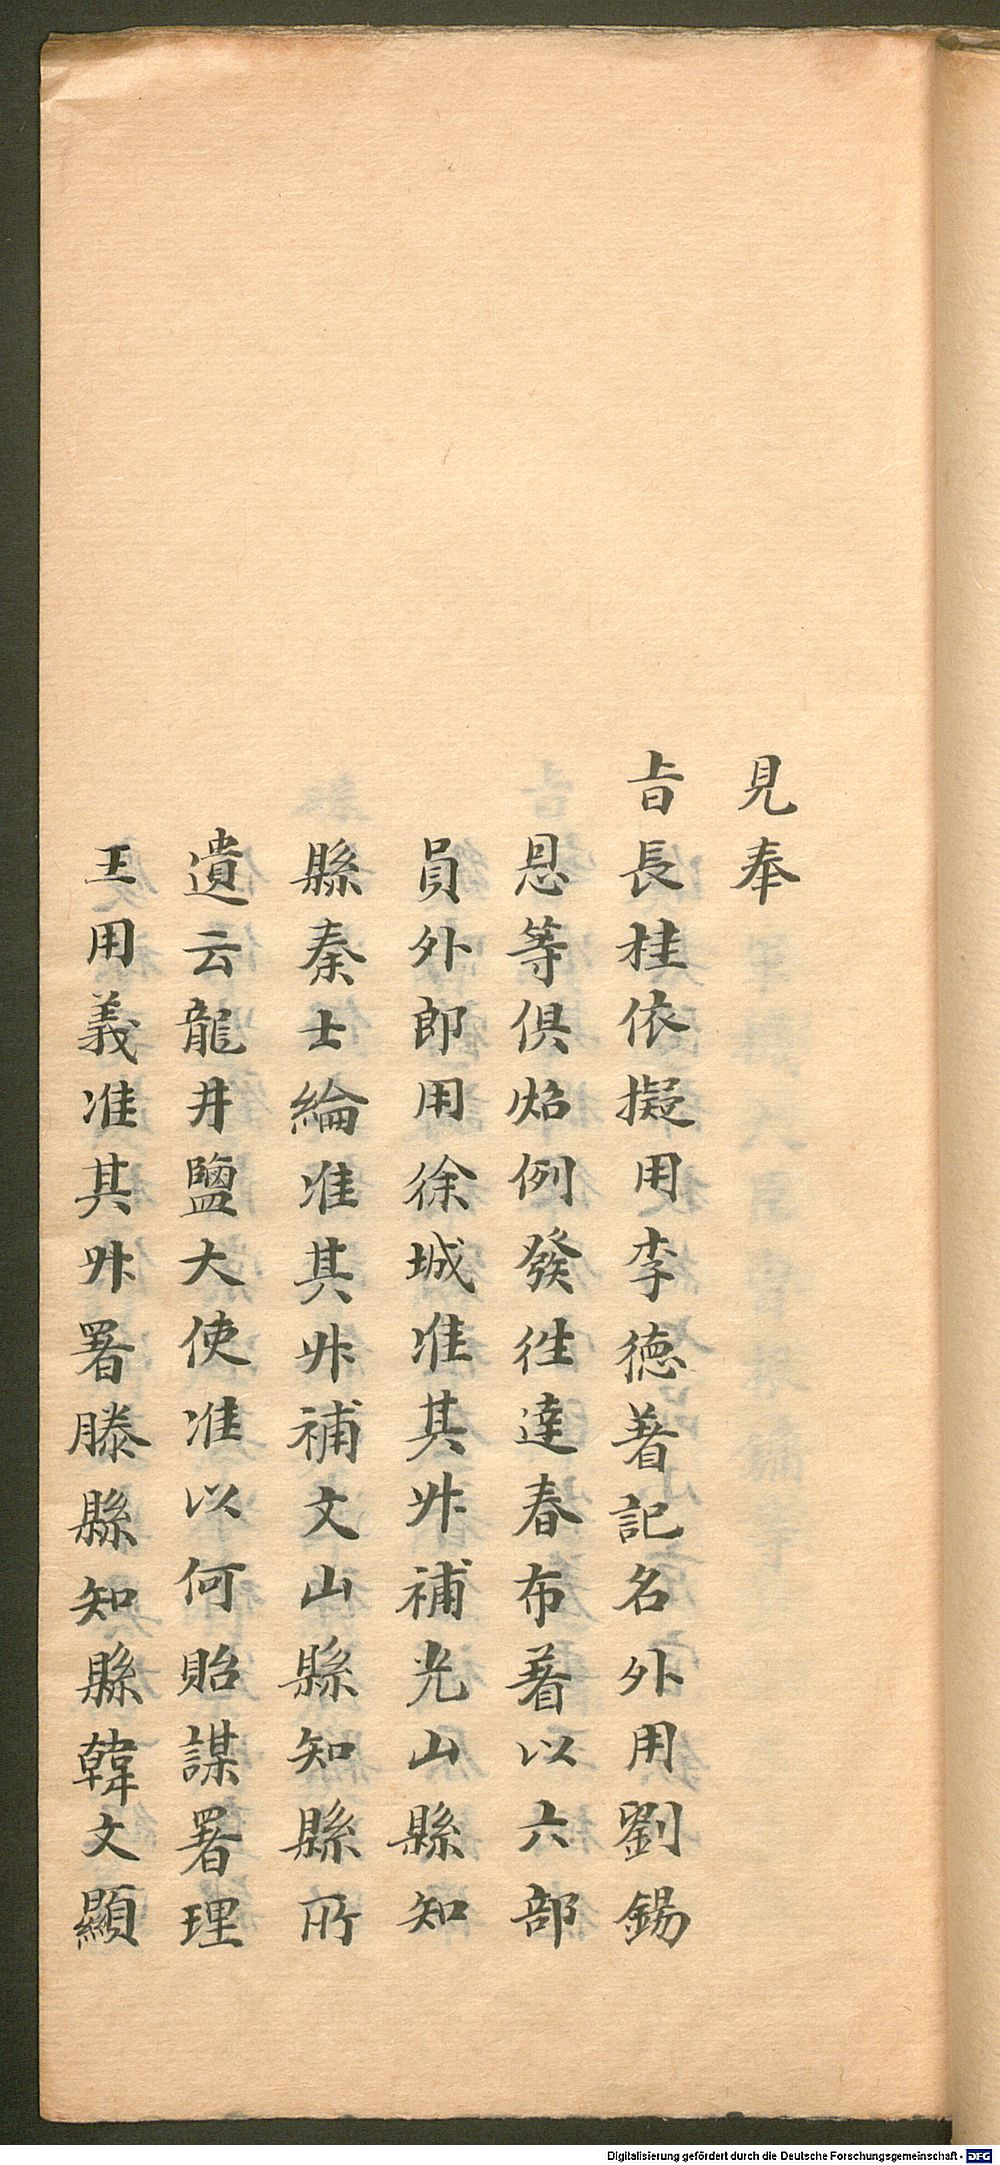 見奉
旨長桂依擬用李德著記名外用劉錫
恩等俱炤例發徃達春布著以六部
員外郎用徐城准其陞補光山縣知
縣秦士綸准其陞補文山縣知縣所
遺云龍井鹽大使准以何貽謀署理
王用義准其陞署滕縣知縣韓文顯
Digitalisierung gefördert durch die Deutsche Forschungsgemeinschaft - DFG